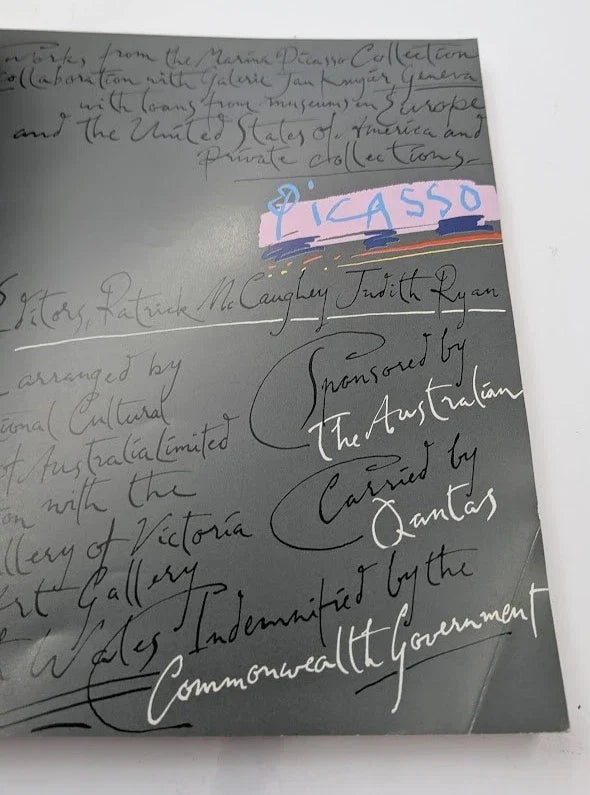 Works from the Marina Picasso Collection
collaboration with Galerie Jan Krugier Geneva
with loans from museums in Europe
and the United States of America and
private collections.
PICASSO
Editors, Patrick McCaughey Judith Ryan
arranged by
ional Cultural
of Australia Limited
on with the
llery of Victoria
Art Gallery
Wales
Sponsored by
The Australian
Carried by
Qantas
Indemnified by the
Commonwealth Government